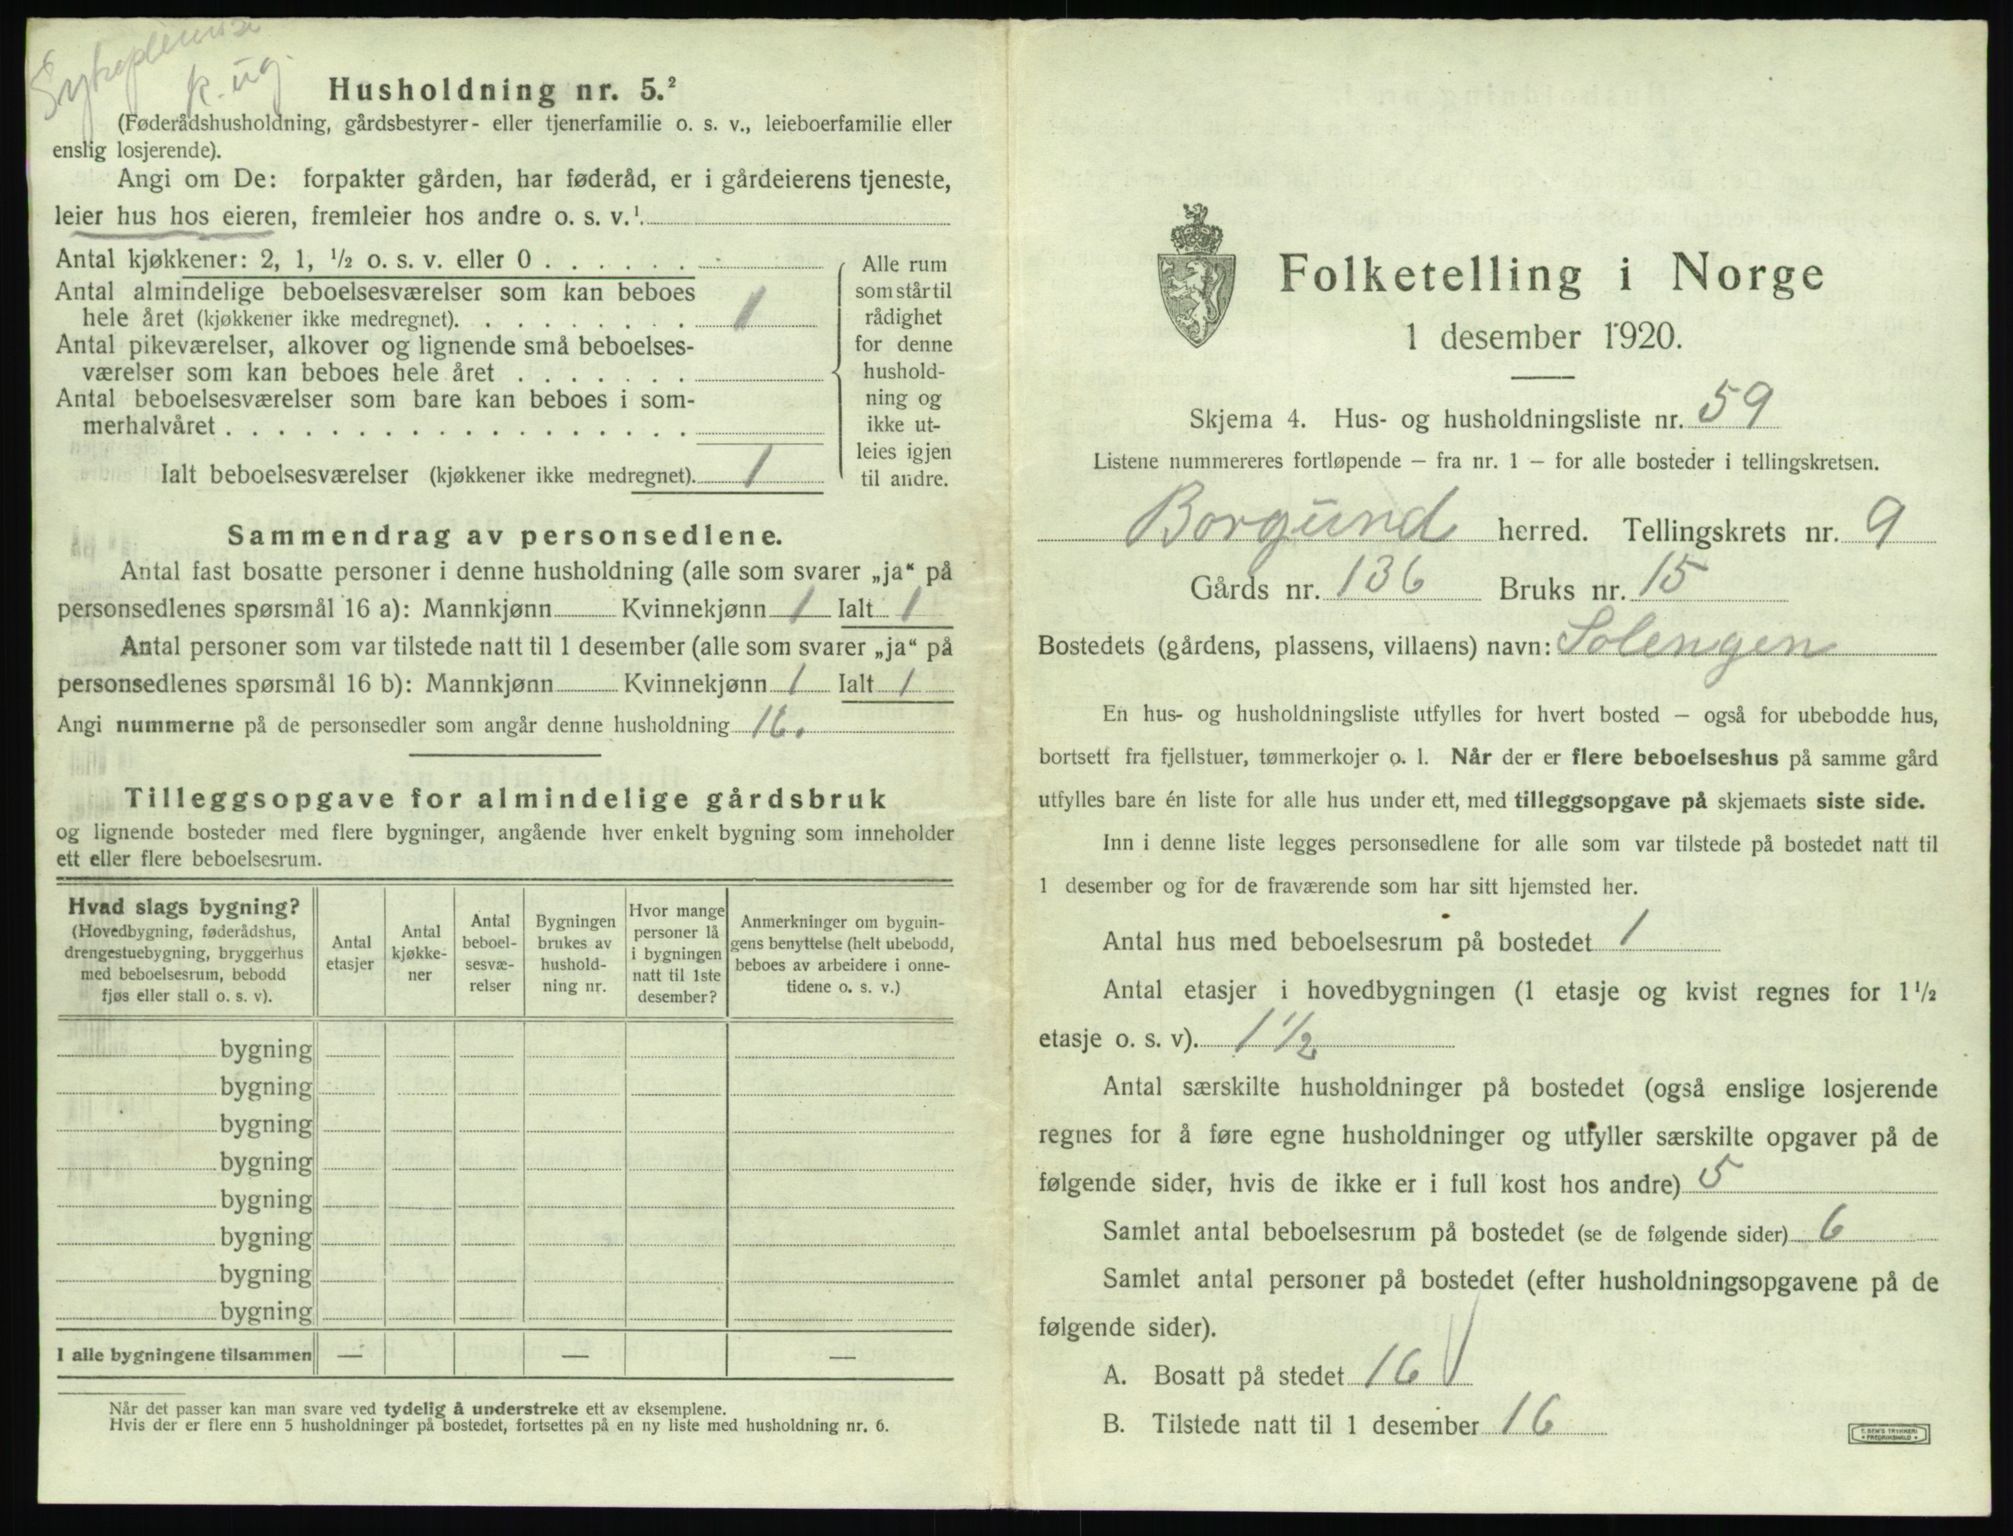 k. ug.
Husholdning nr. 5.²
(Føderådshusholdning, gårdsbestyrer- eller tjenerfamilie o. s. v., leieboerfamilie eller
enslig losjerende).
Angi om De: forpakter gården, har føderåd, er i gårdeierens tjeneste,
leier hus hos eieren, fremleier hos andre o. s. v.¹
Antal kjøkkener: 2, 1, ½ o. s. v. eller 0 . . . . . .
Antal almindelige beboelsesværelser som kan beboes
hele året (kjøkkener ikke medregnet). . . . . . . . . 1
Antal pikeværelser, alkover og lignende små beboelses-
værelser som kan beboes hele året . . . . . . .
Antal beboelsesværelser som bare kan beboes i som-
merhalvåret . . . . . . . . . . . . . . . . . .
Ialt beboelsesværelser (kjøkkener ikke medregnet). 1
Alle rum
som står til
rådighet
for denne
hushold-
ning og
ikke ut-
leies igjen
til andre.
Sammendrag av personsedlene.
Antal fast bosatte personer i denne husholdning (alle som svarer „ja“ på
personsedlenes spørsmål 16 a): Mannkjønn Kvinnekjønn 1 Ialt 1
Antal personer som var tilstede natt til 1 desember (alle som svarer „ja“ på
personsedlenes spørsmål 16 b): Mannkjønn Kvinnekjønn 1 Ialt 1
Angi nummerne på de personsedler som angår denne husholdning 16.
Tilleggsopgave for almindelige gårdsbruk
og lignende bosteder med flere bygninger, angående hver enkelt bygning som inneholder
ett eller flere beboelsesrum.
Hvad slags bygning?
(Hovedbygning, føderådshus,
drengestuebygning, bryggerhus
med beboelsesrum, bebodd
fjøs eller stall o. s. v).
Antal
etasjer
Antal
kjøkke-
ner
Antal
beboel-
sesvæ-
relser
Bygningen
brukes av
hushold-
ning nr.
Hvor mange
personer lå
i bygningen
natt til 1ste
desember?
Anmerkninger om bygnin-
gens benyttelse (helt ubebodd,
beboes av arbeidere i onne-
tidene o. s. v.)
bygning
bygning
bygning
bygning
bygning
bygning
bygning
bygning
I alle bygningene tilsammen — — —
Når det passer kan man svare ved tydelig å understreke ett av eksemplene.
Hvis der er flere enn 5 husholdninger på bostedet, fortsettes på en ny liste med husholdning nr. 6.
Folketelling i Norge
1 desember 1920.
Skjema 4. Hus- og husholdningsliste nr. 59
Listene nummereres fortløpende – fra nr. 1 – for alle bosteder i tellingskretsen.
Borgund herred. Tellingskrets nr. 9
Gårds nr. 136 Bruks nr. 15
Bostedets (gårdens, plassens, villaens) navn: Solengen
En hus- og husholdningsliste utfylles for hvert bosted – også for ubebodde hus,
bortsett fra fjellstuer, tømmerkojer o. l. Når der er flere beboelseshus på samme gård
utfylles bare én liste for alle hus under ett, med tilleggsopgave på skjemaets siste side.
Inn i denne liste legges personsedlene for alle som var tilstede på bostedet natt til
1 desember og for de fraværende som har sitt hjemsted her.
Antal hus med beboelsesrum på bostedet 1
Antal etasjer i hovedbygningen (1 etasje og kvist regnes for 1½
etasje o. s. v). 1½
Antal særskilte husholdninger på bostedet (også enslige losjerende
regnes for å føre egne husholdninger og utfyller særskilte opgaver på de
følgende sider, hvis de ikke er i full kost hos andre) 5
Samlet antal beboelsesrum på bostedet (se de følgende sider) 6
Samlet antal personer på bostedet (efter husholdningsopgavene på de
følgende sider).
A. Bosatt på stedet 16
B. Tilstede natt til 1 desember 16